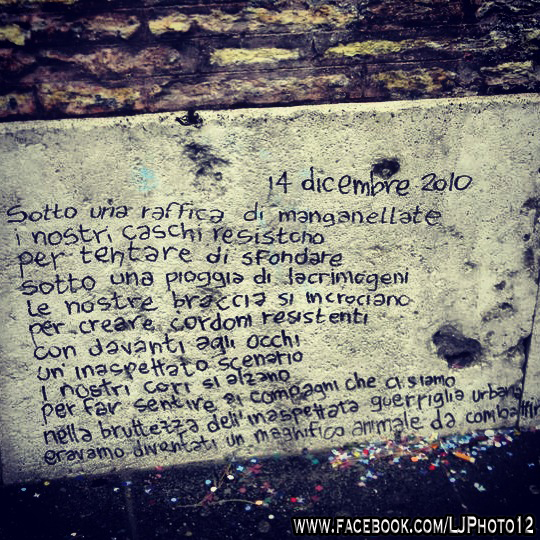 14 dicembre 2010
Sotto una raffica di manganellate
i nostri caschi resistono
per tentare di sfondare
sotto una pioggia di lacrimogeni
le nostre braccia si incrociano
per creare cordoni resistenti
con davanti agli occhi
un'inaspettato scenario
i nostri cori si alzano
per far sentire ai compagni che ci siamo
nella bruttezza dell'inaspettata guerriglia urbana
eravamo diventati un magnifico animale da
WWW.FACEBOOK.COM/LJPHOTO12